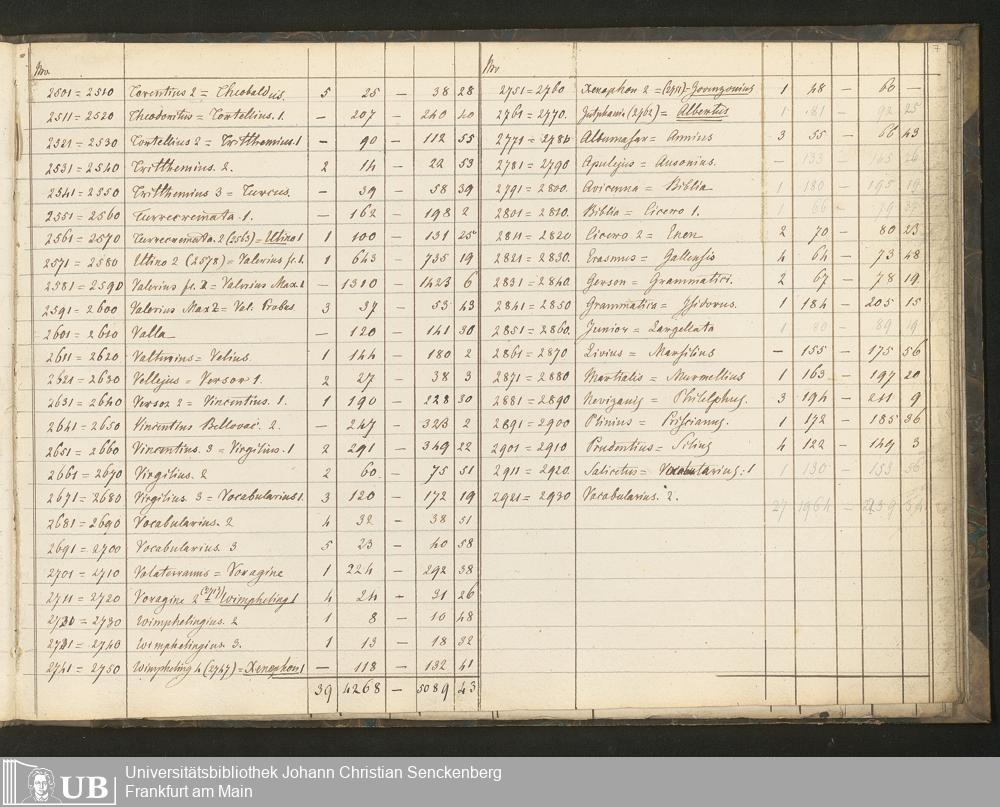 Nro
2501 = 2510 Terentius 2 = Theobaldus. 5 25 — 38 28
2511 = 2520 Theodoritus = Tortellius. 1. — 207 — 240 40
2521 = 2530 Tortellius 2 = Tritthemius. 1 — 90 — 112 55
2531 = 2540 Tritthemius. 2. 2 14 — 22 53
2541 = 2550 Tritthemius 3 = Turcus. — 39 — 58 39
2551 = 2560 Turrecremata. 1. — 162 — 198 2
2561 = 2570 Turrecremata. 2 (2563) = Utino 1 1 100 — 131 25
2571 = 2580 Utino 2 (2578) = Valerius fr. 1. 1 643 — 735 19
2581 = 2590 Valerius fr. 2 = Valerius Max. 1 — 1310 — 1423 6
2591 = 2600 Valerius Max 2 = Val. Probus 3 37 — 53 43
2601 = 2610 Valla — 120 — 141 30
2611 = 2620 Valturius = Velius 1 144 — 180 2
2621 = 2630 Vellejus = Versor 1. 2 27 — 38 3
2631 = 2640 Versor 2 = Vincentius. 1. 1 190 — 228 30
2641 = 2650 Vincentius Bellovac. 2. — 247 — 323 2
2651 = 2660 Vincentius. 3 = Virgilius. 1 2 291 — 349 22
2661 = 2670 Virgilius. 2 2 60 — 75 51
2671 = 2680 Virgilius. 3 = Vocabularius 1. 3 120 — 172 19
2681 = 2690 Vocabularius. 2 4 32 — 38 51
2691 = 2700 Vocabularius. 3 5 23 — 40 58
2701 = 2710 Volaterranus = Voragine 1 224 — 292 38
2711 = 2720 Voragine 2 Wimpheling 1 4 24 — 31 26
2721 = 2730 Wimphelingius. 2 1 8 — 10 48
2731 = 2740 Wimphelingius. 3. 1 13 — 18 32
2741 = 2750 Wimpheling 4 (2747) = Xenophon 1 — 118 — 132 41
39 4268 — 5089 43
Nro
2751 = 2760 Xenophon 2 = 1 48 — 60 —
2761 = 2770. (2762) = Albertus 1 81 — 92 25
2771 = 2780 Albumasar = Annius 3 55 — 66 43
2781 = 2790 Apulejus = Ausonius. — 133 — 165 26
2791 = 2800. Avicenna = Biblia 1 180 — 195 19
2801 = 2810. Biblia = Cicero 1. 1 66 — 79
2811 = 2820 Cicero 2 = Enen 2 70 — 80 23
2821 = 2830. Erasmus = Gallensis 4 64 — 73 48
2831 = 2840. Gerson = Grammatici. 2 67 — 78 19
2841 = 2850 Grammatica = Isidorus. 1 184 — 205 15
2851 = 2860. Junior = Largelata 1 80 — 89 19
2861 = 2870 Livius = Marsilius — 155 — 175 56
2871 = 2880 Martialis = Murmellius 1 163 — 197 20
2881 = 2890 Nevizanis = Philelphus. 3 194 — 211 9
2891 = 2900 Plinius = Priscianus. 1 172 — 185 36
2901 = 2910 Prudentius = Silius 4 122 — 149 3
2911 = 2920. Salicetus = Vocabularius: 1 1 130 — 153 56
2921 = 2930 Vocabularius. 2.
27 1964 —
UB Universitätsbibliothek Johann Christian Senckenberg
Frankfurt am Main